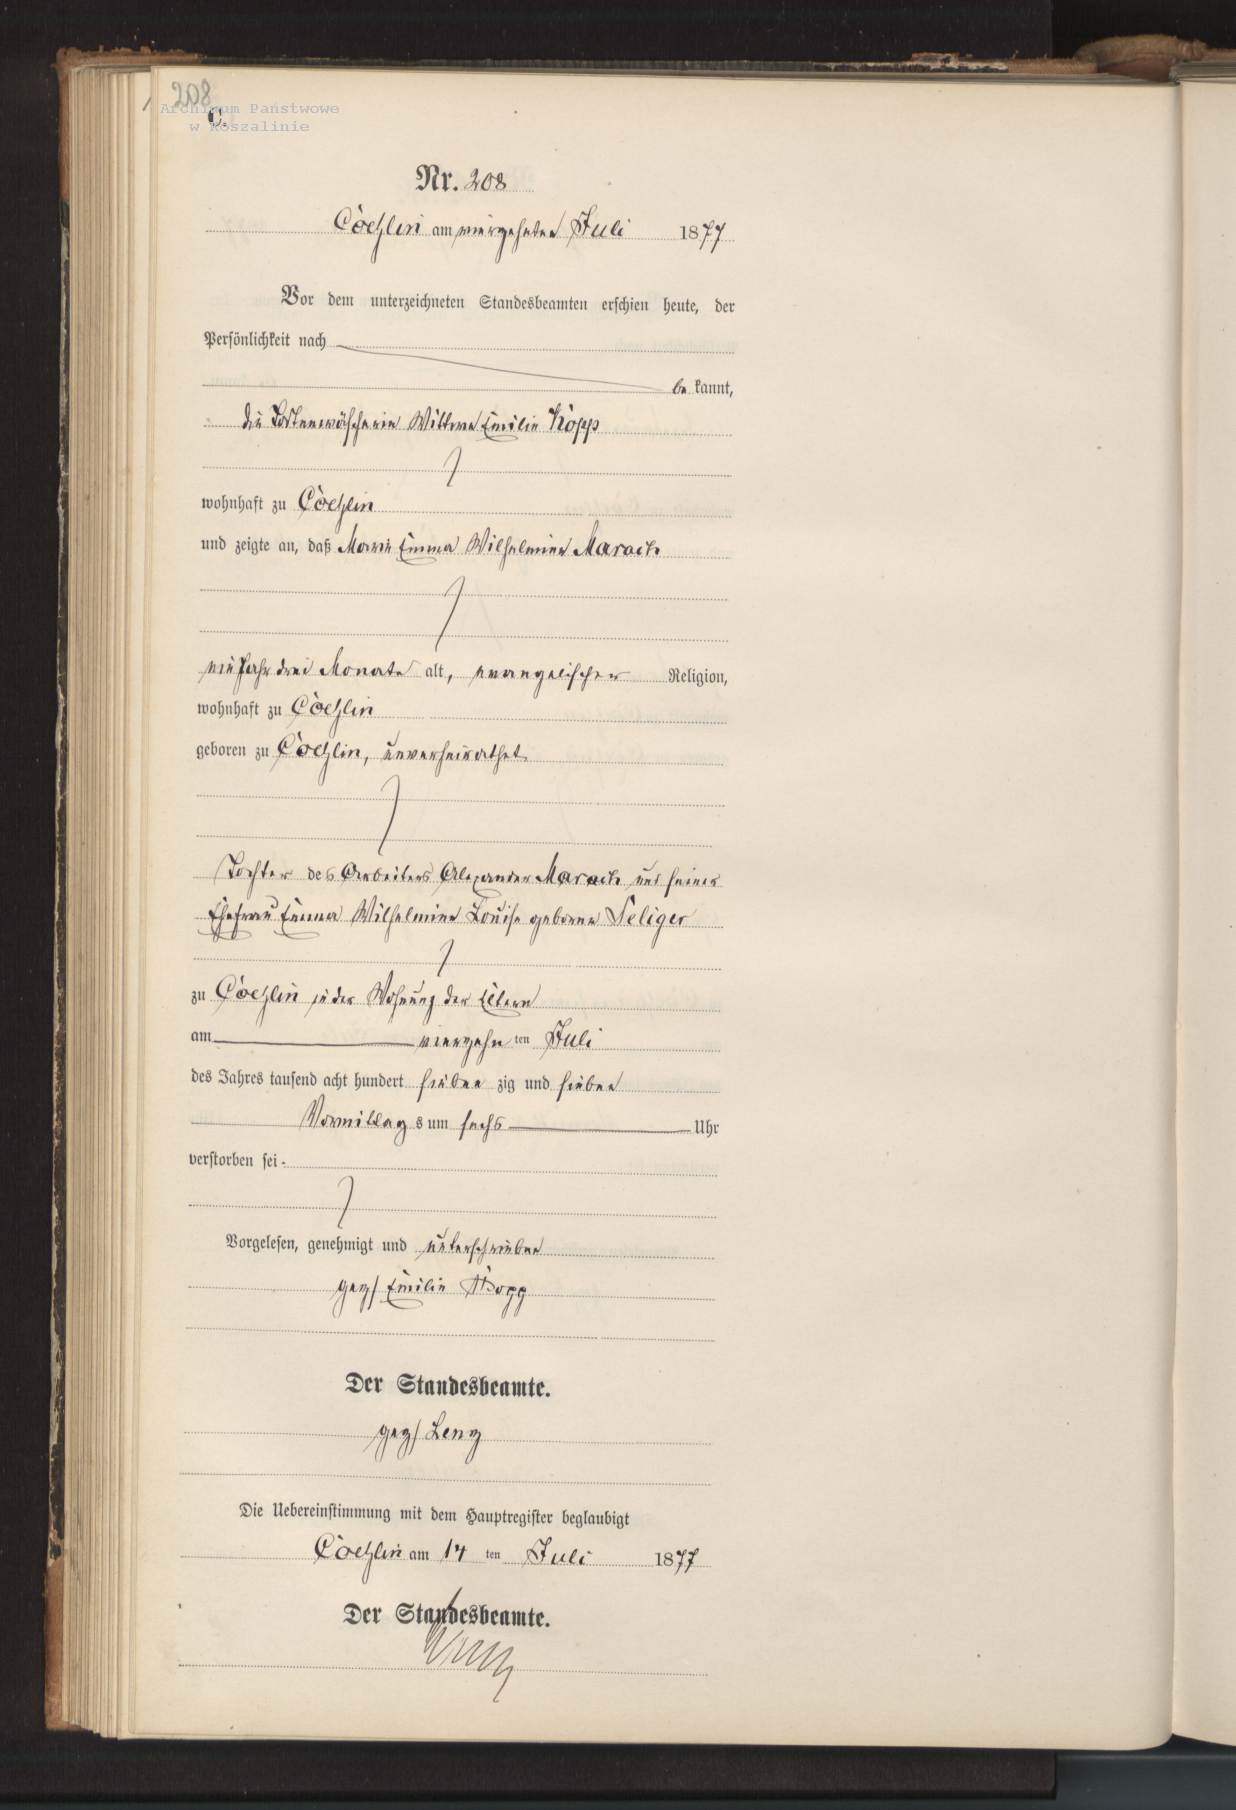 208
Archiwum Państwowe
w Koszalinie
C.
Nr. 208
Coeslin am vierzehnten Juli 1877
Vor dem unterzeichneten Standesbeamten erschien heute, der
Persönlichkeit nach
be kannt,
die Todtenwäscherin Wittwe Emilie Kopp
wohnhaft zu Coeslin
und zeigte an, daß Marie Emma Wilhelmine Marach
ein Jahr drei Monate alt, evangelischer Religion,
wohnhaft zu Coeslin
geboren zu Coeslin, unverheirathet
Tochter des Arbeiters Alexander Marach und seiner
Ehefrau Emma Wilhelmine Louise geborene Seliger
zu Coeslin in der Wohnung der Eltern
am vierzehn ten Juli
des Jahres tausend acht hundert sieben zig und sieben
Vormittag s um sechs Uhr
verstorben sei.
Vorgelesen, genehmigt und unterschrieben
gez/ Emilie Kopp
Der Standesbeamte.
gez/ Lenz
Die Uebereinstimmung mit dem Hauptregister beglaubigt
Coeslin am 14 ten Juli 1877
Der Standesbeamte.
Lenz